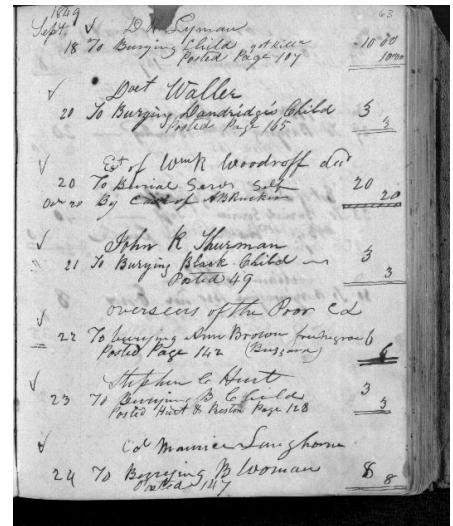 1849 63
Sept. √ D. R. Lyman
18 To Burying Child got killed 10 00
Posted Page 107 10 00
√ Doct Waller
20 To Burying Dandridge's Child 3
Posted Page 165 3
√ Est of Wm K Woodroff decd
20 To Burial Servs Self 20
Oct 20 By Cash of AB Rucker 20
√ John R Thurman
21 To Burying Black Child 3
Posted 49 3
√ overseers of the Poor Cd
22 To burying Ann Brown free negroe 6
Posted Page 142 6
√ Stephen C Hurt
23 To Burying B Child 3
Posted Hurt & Preston Page 128 3
√ Cd Maurice Langhorne
24 To Burying B Woman 8
Posted 147 8